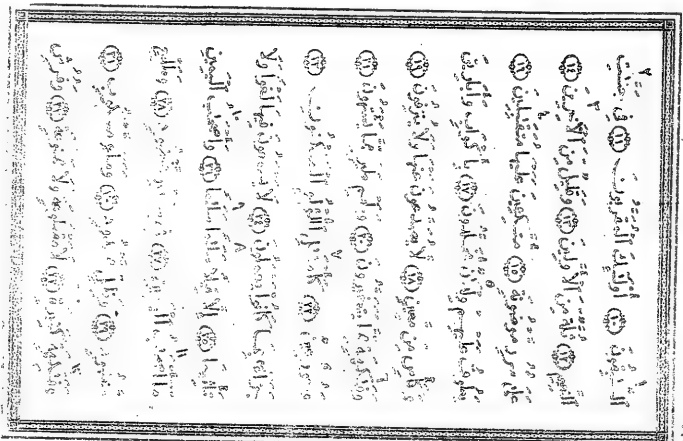 السَّٰبِقُونَ ﴿١٠﴾ أُولَٰئِكَ الْمُقَرَّبُونَ ﴿١١﴾ فِي جَنَّٰتِ
النَّعِيمِ ﴿١٢﴾ ثُلَّةٌ مِنَ الْأَوَّلِينَ ﴿١٣﴾ وَقَلِيلٌ مِنَ الْآخِرِينَ ﴿١٤﴾
عَلَىٰ سُرُرٍ مَوْضُونَةٍ ﴿١٥﴾ مُتَّكِئِينَ عَلَيْهَا مُتَقَٰبِلِينَ ﴿١٦﴾
يَطُوفُ عَلَيْهِمْ وِلْدَٰنٌ مُخَلَّدُونَ ﴿١٧﴾ بِأَكْوَابٍ وَأَبَارِيقَ
وَكَأْسٍ مِنْ مَعِينٍ ﴿١٨﴾ لَا يُصَدَّعُونَ عَنْهَا وَلَا يُنْزِفُونَ ﴿١٩﴾
وَفَٰكِهَةٍ مِمَّا يَتَخَيَّرُونَ ﴿٢٠﴾ وَلَحْمِ طَيْرٍ مِمَّا يَشْتَهُونَ ﴿٢١﴾
وَحُورٌ عِينٌ ﴿٢٢﴾ كَأَمْثَٰلِ اللُّؤْلُؤِ الْمَكْنُونِ ﴿٢٣﴾
جَزَآءً بِمَا كَانُوا يَعْمَلُونَ ﴿٢٤﴾ لَا يَسْمَعُونَ فِيهَا لَغْوًا وَلَا
تَأْثِيمًا ﴿٢٥﴾ إِلَّا قِيلًا سَلَٰمًا سَلَٰمًا ﴿٢٦﴾ وَأَصْحَٰبُ الْيَمِينِ
مَآ أَصْحَٰبُ الْيَمِينِ ﴿٢٧﴾ فِي سِدْرٍ مَخْضُودٍ ﴿٢٨﴾ وَطَلْحٍ
مَنْضُودٍ ﴿٢٩﴾ وَظِلٍّ مَمْدُودٍ ﴿٣٠﴾ وَمَآءٍ مَسْكُوبٍ ﴿٣١﴾
وَفَٰكِهَةٍ كَثِيرَةٍ ﴿٣٢﴾ لَا مَقْطُوعَةٍ وَلَا مَمْنُوعَةٍ ﴿٣٣﴾ وَفُرُشٍ